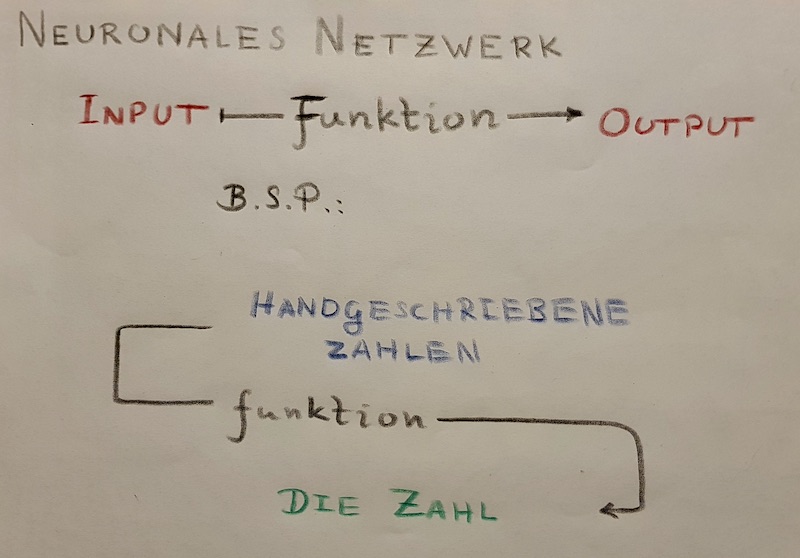 NEURONALES NETZWERK
INPUT Funktion OUTPUT
B.S.P.:
HANDGESCHRIEBENE
ZAHLEN
funktion
DIE ZAHL